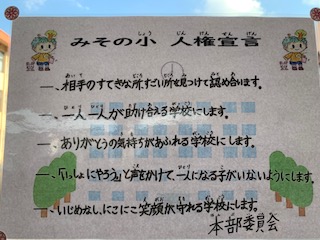 みその小 人権宣言
一、相手のすてきな所、すごい所を見つけて認め合います。
一、一人一人が助け合える学校にします。
一、ありがとうの気持ちがあふれる学校にします。
一、「いっしょにやろう。」と声をかけて一人になる子がいないようにします。
一、いじめなし、にこにこ笑顔が守れる学校にします。
本部委員会